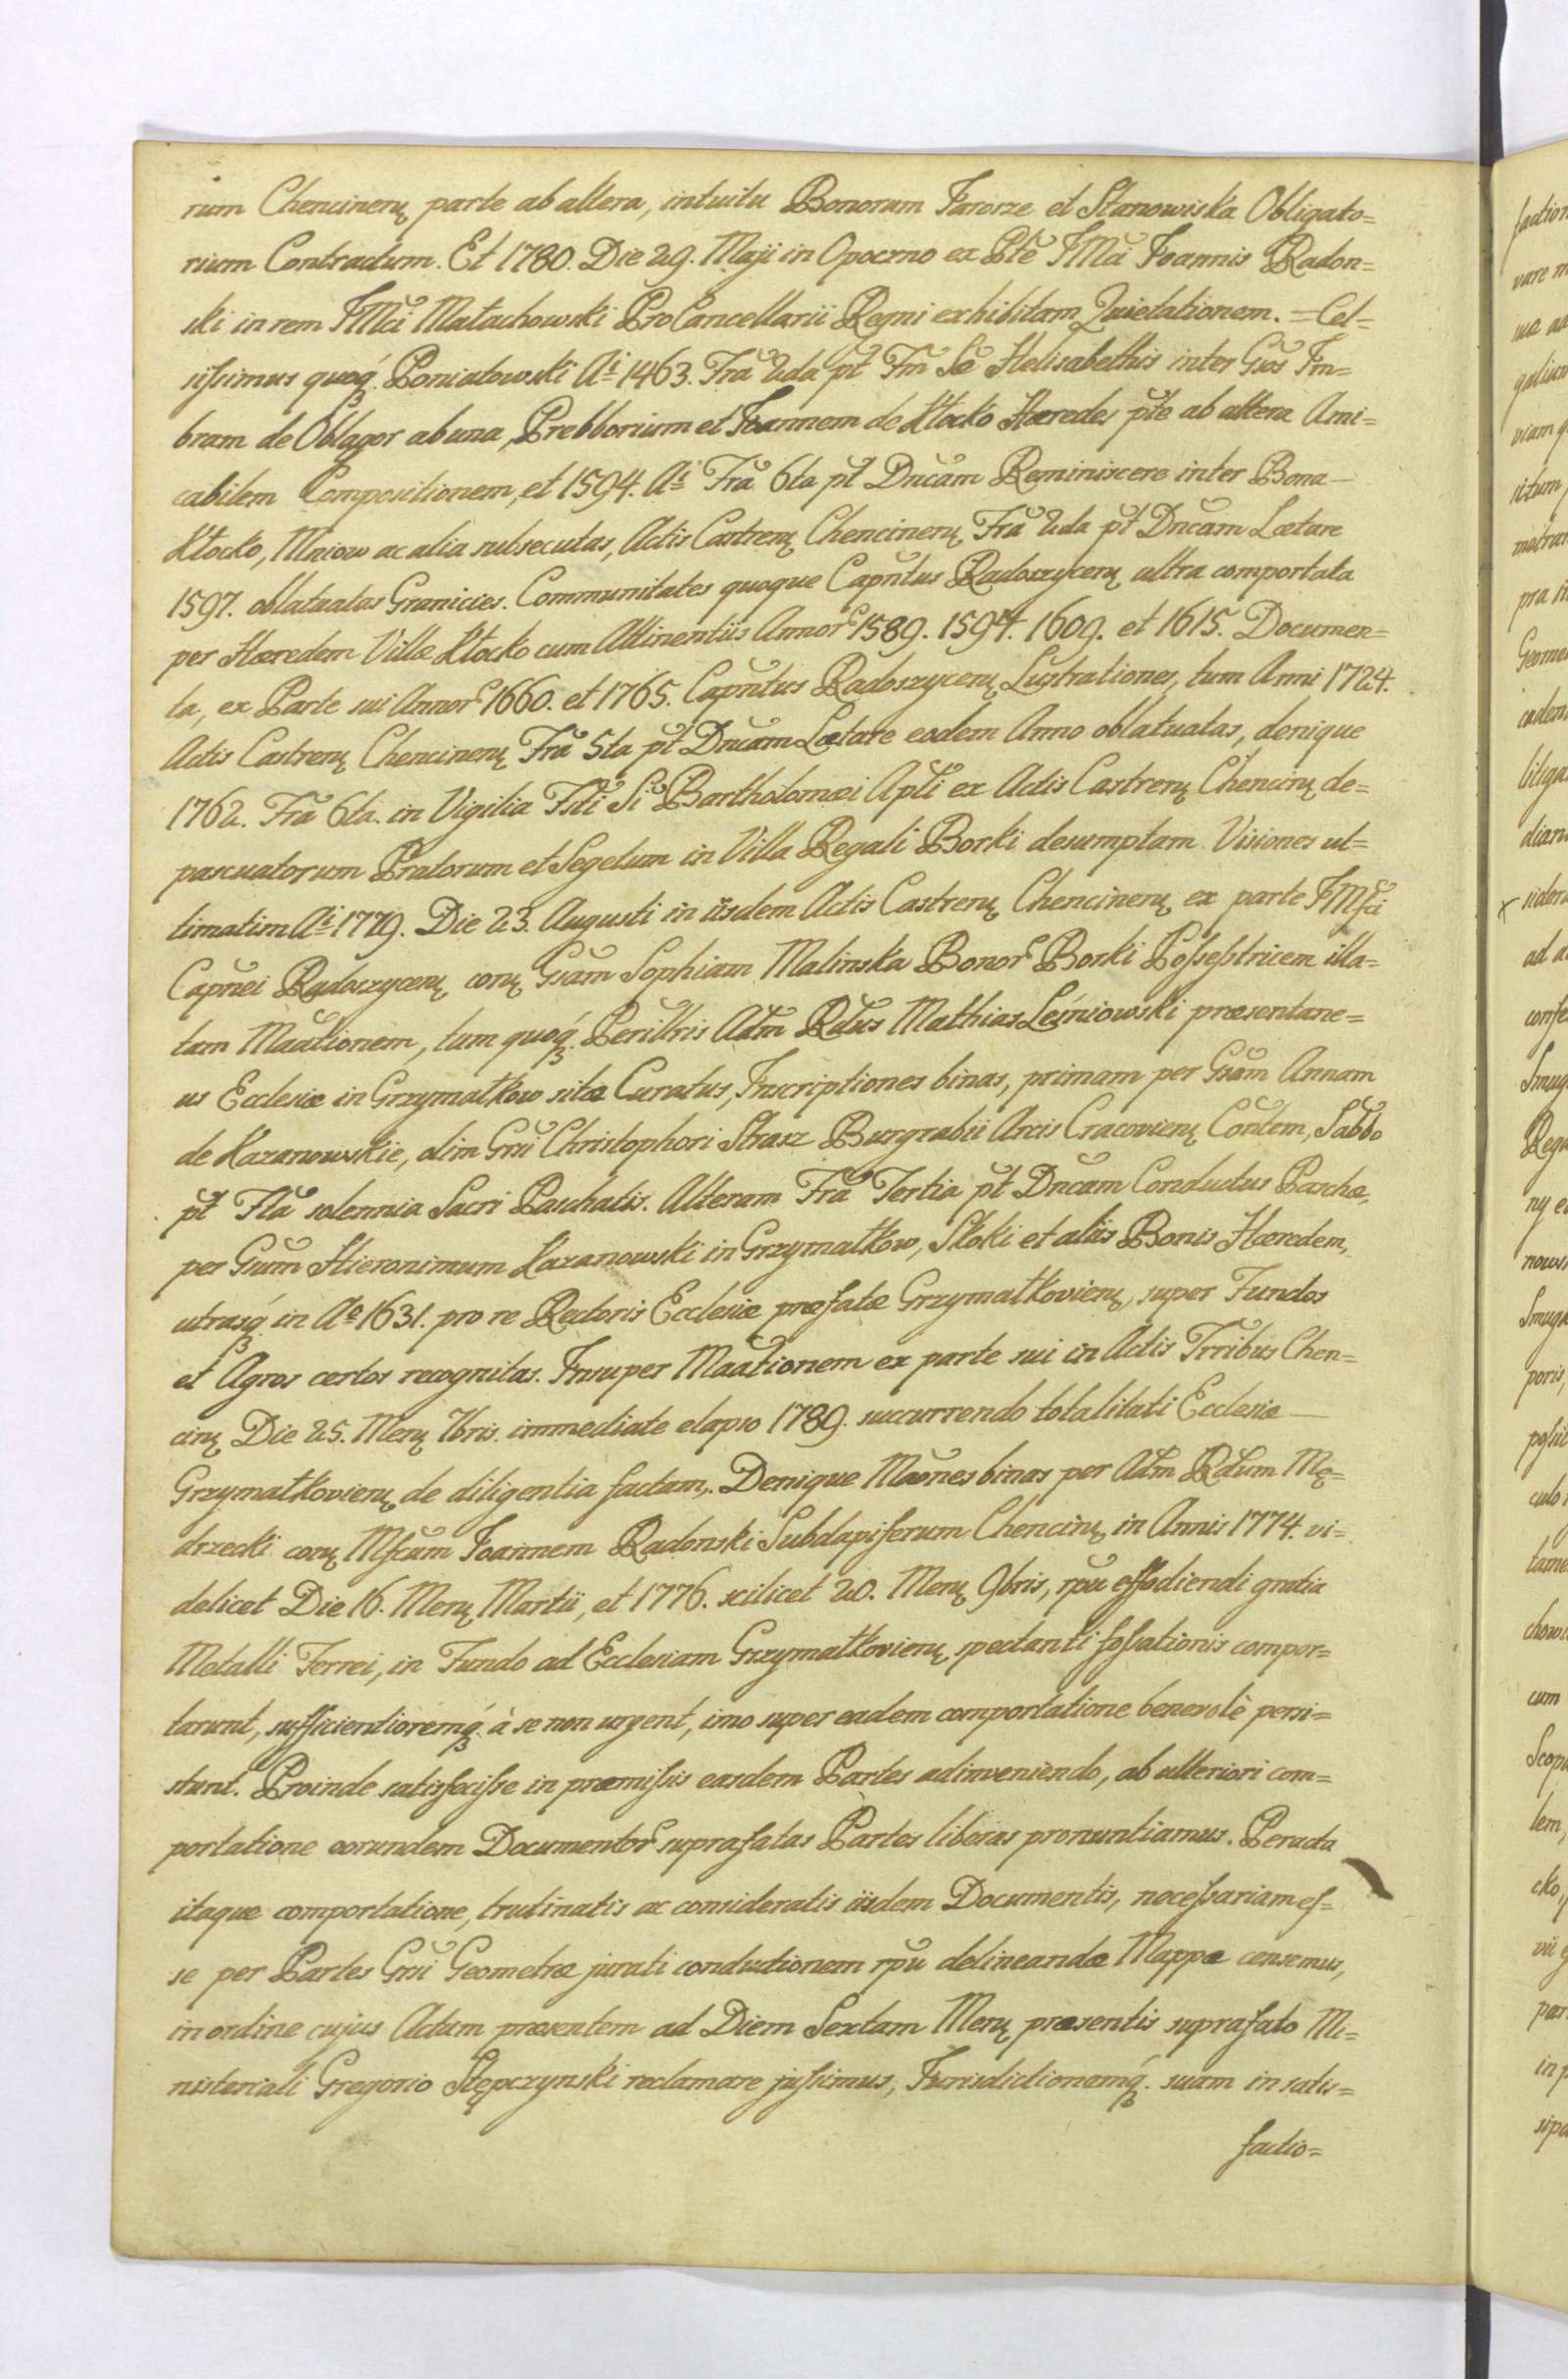 rum Chencinen͡ parte ab altera, intuitu Bonorum Jarosze et Stanowiska Obligato=
rium Contractum. Et 1780. Die 29. Maji in Opoczno ex Pte JMci Joannis Radon=
ski in rem JMci Małachowski ProCancellarii Regni exhibitam Quietationem. = Cel=
sissimus quoq́ Poniatowski Ai 1463. Fra 2da pt Fm Se Helisabethis inter Gsos Im=
bram de Oblagor ab una, Prebborium et Joannem de Kłocko Hæredes pte ab altera Ami=
cabilem Compositionem, et 1594. Ai Fra 6ta pt Dncam Reminiscere inter Bona
Kłocko, Maiow ac alia subsecutas, Actis Castren Chencinen Fra 2da pt Dncam Lætare
1597. oblatuatas Granicies. Communitates quoque Capntus Radoszycen ultra comportata
per Hæredem Villæ Kłocko cum Attinentiis Annor 1589. 1594. 1609. et 1615. Documen=
ta, ex Parte sui Annor 1660. et 1765. Capntus Radoszycen Lustrationes, tum Anni 1724.
Actis Castren Chencinen Fra 5ta pt Dncam Lætare eodem Anno oblatuatas, denique
1762. Fra 6ta. in Vigilia Fsti Si Bartholomæi Apli ex Actis Castren Chencin de=
pascuatorum Pratorum et Segetum in Villa Regali Borki desumptam Visiones ul=
timatim Ai 1779. Die 23. Augusti in iisdem Actis Castren Chencinen ex parte JMsci
Capnei Radoszycen con Gsam Sophiam Malinska Bonor Borki Possestricem illa=
tam Maationem, tum quoq́ Perillris Adm Rdus Mathias Leśniowski præsentane=
us Ecclesiæ in Grzymałkow sitæ Curatus, Inscriptiones binas, primam per Gsam Annam
de Kazanowskie, olim Gsi Christophori Strasz Burgrabii Arcis Cracovien Contem, Sabbo
pt Fta solennia Sacri Paschatis. Alteram Fra Tertia pt Dncam Conductus Paschæ,
per Gsum Hieronimum Kazanowski in Grzymałkow, Skoki et aliis Bonis Hæredem,
utrasq́ in Ao 1631. pro re Rectoris Ecclesiæ præfatæ Grzymałkovien, super Fundos
et Agros certos recognitas. Insuper Maationem ex parte sui in Actis Trribus Chen=
cin Die 25. Men 7bris. immediate elapso 1789. succurrendo totalitati Ecclesiæ
Grzymałkovien de diligentia factam,. Denique Maones binas per Adm Rdum Mę=
drzecki con Mscum Joannem Radonski Subdapiferum Chencin, in Annis 1774. vi=
delicet Die 16. Men Martii, et 1776. scilicet 20. Men 9bris, rpu effodiendi gratia
Metalli Ferrei, in Fundo ad Ecclesiam Grzymałkovien spectanti fossationis compor=
tarunt, sufficientioremq́ à se non urgent, imo super eadem comportatione benevolè persi=
stunt. Proinde satisfecisse in præmissis easdem Partes adinveniendo, ab ulteriori com=
portatione eorundem Documentor suprafatas Partes liberas pronuntiamus. Peracta
itaque comportatione, trutinatis ac consideratis iisdem Documentis, necessariam es=
se per Partes Gsi Geometræ jurati conductionem rpu delineandæ Mappæ censemus,
in ordine cujus Actum præsentem ad Diem Sextam Men præsentis suprafato Mi=
nisteriali Gregorio Stępczynski reclamare jussimus, Jurisdictionemq́ suam in satis=
factio=